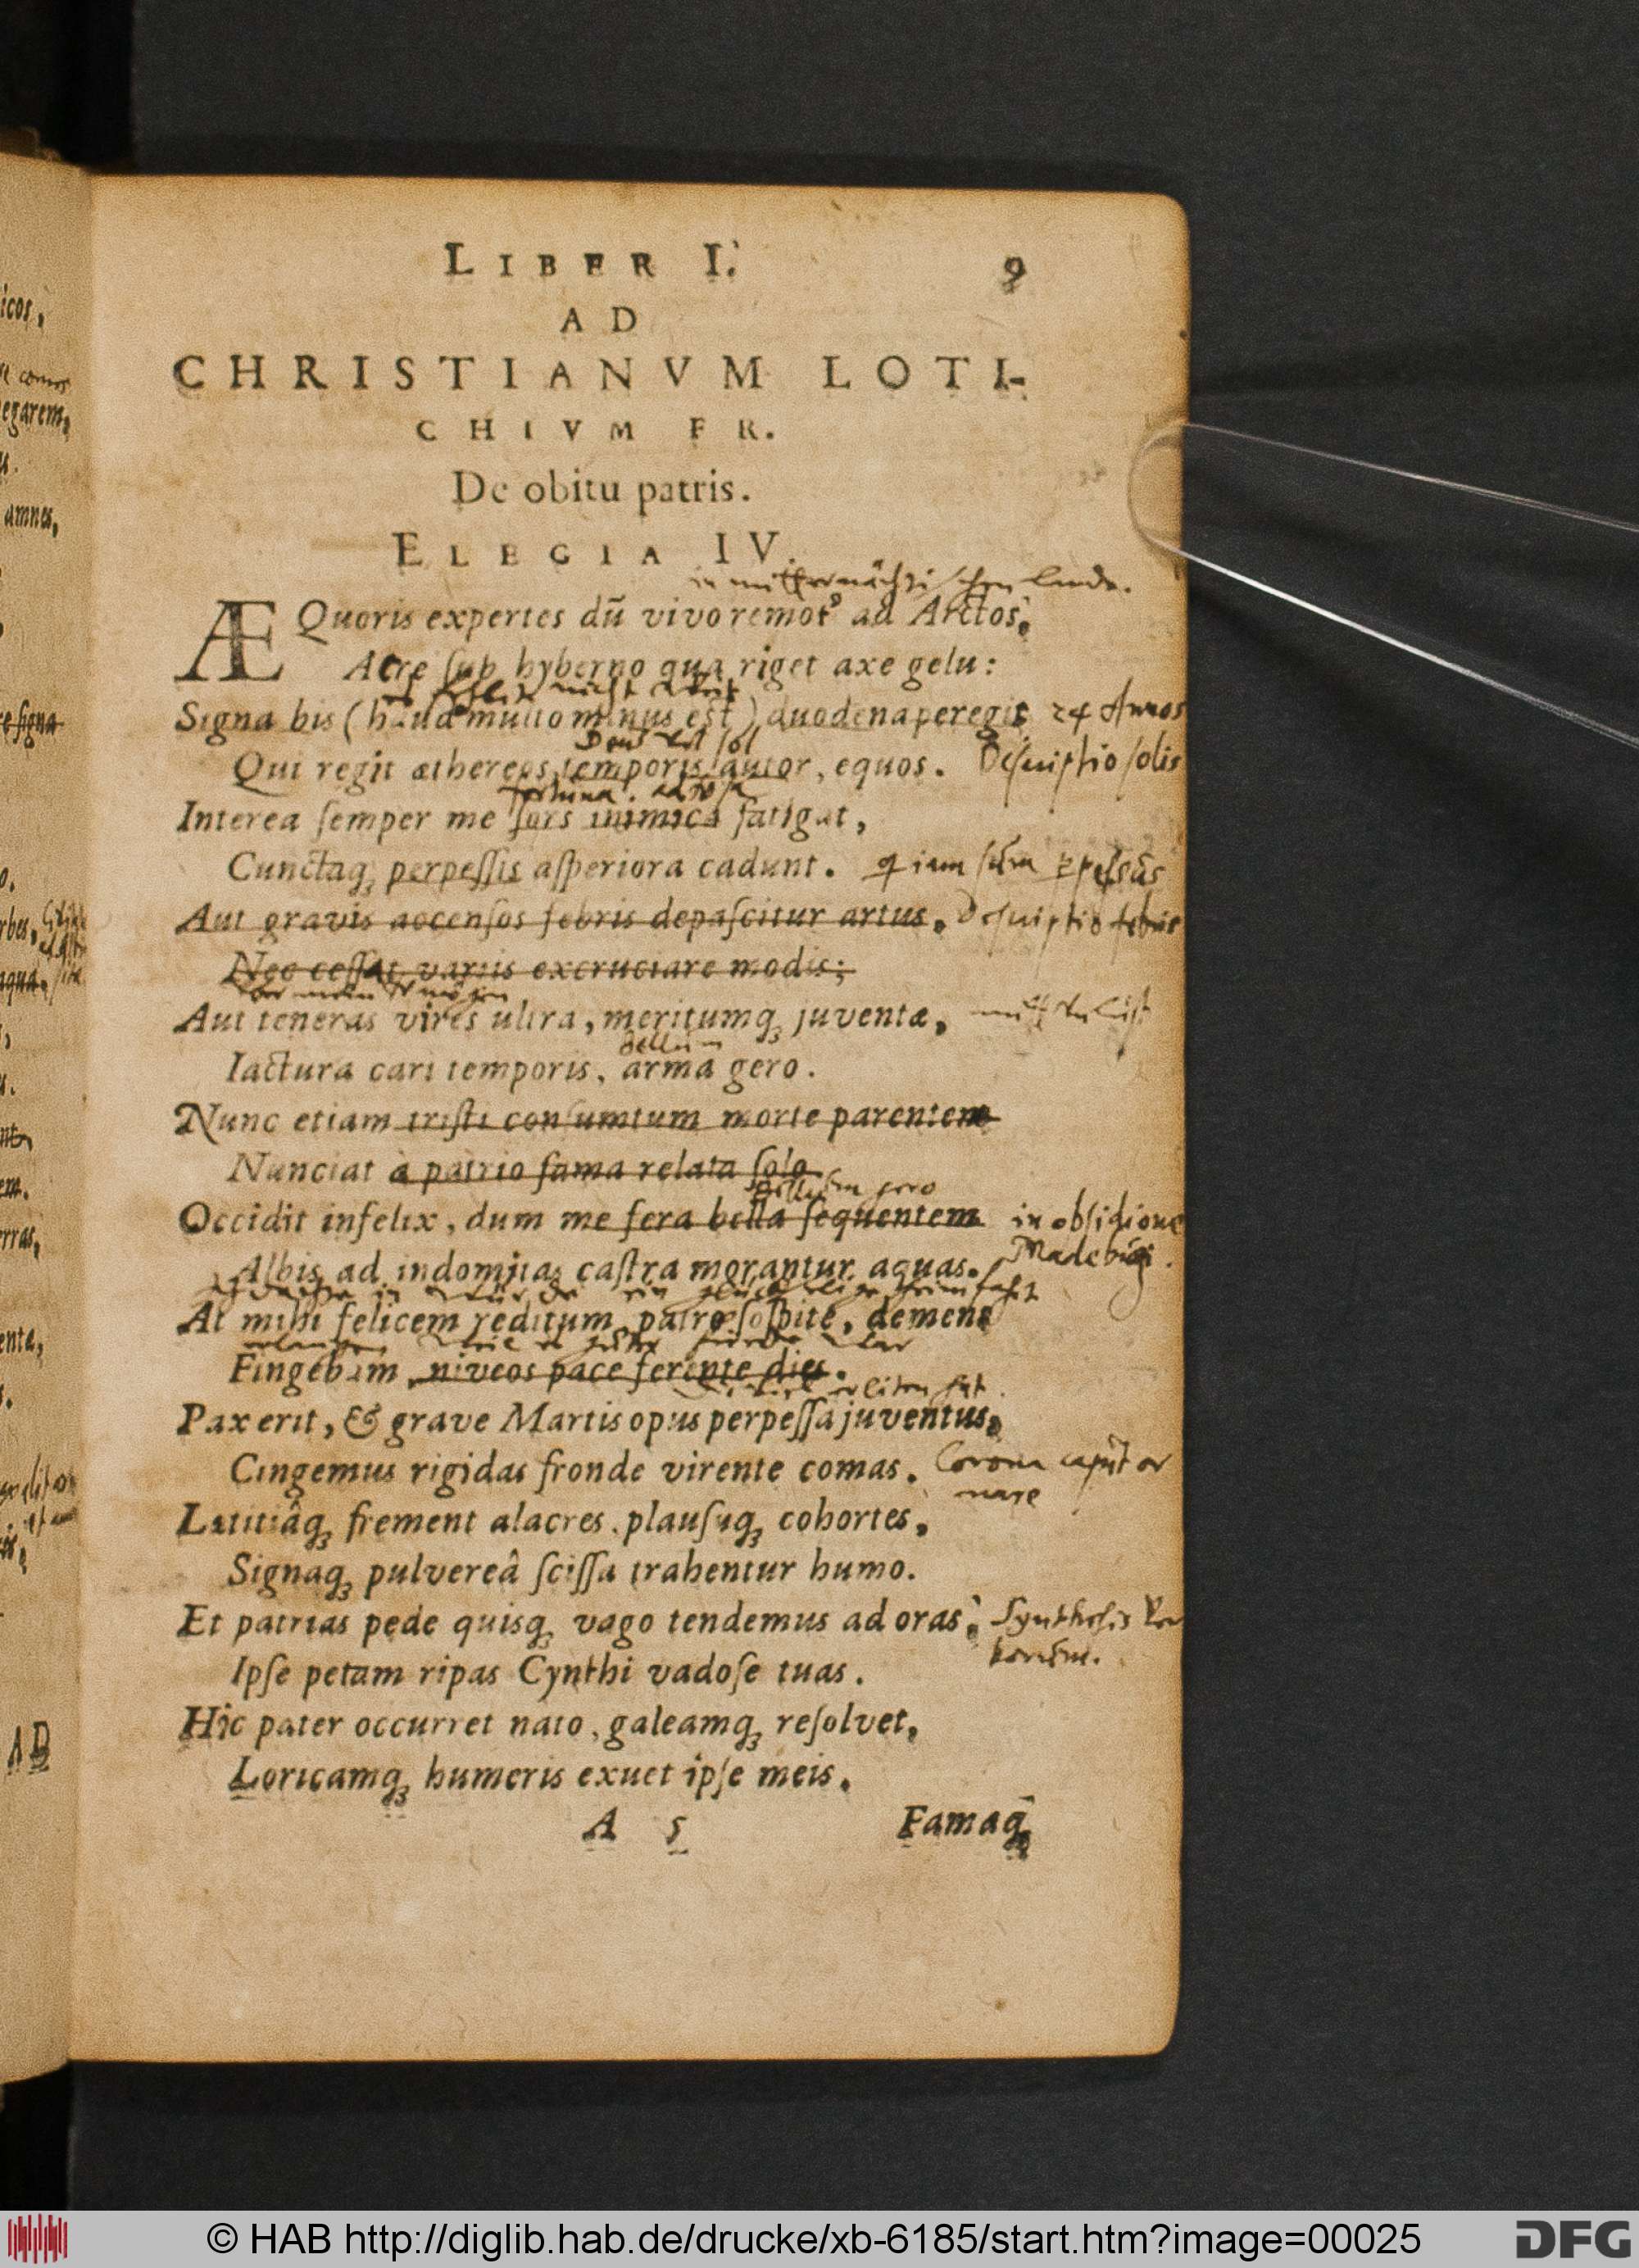 icos,
egarem,
amnes,
LIBER I.
9
AD
CHRISTIANVM LOTI-
CHIVM FR.
De obitu patris.
ELEGIA IV.
ÆQuoris expertes dũ vivo remotꝰ ad Arctos,
Aëre ſub hyberno qua riget axe gelu:
Signa bis (haud multo minus est) duodena peregit 24 Annos
Deus vel sol
Qui regit æthereos, temporis autor, equos. Descriptio solis
fortuna.
Interea ſemper me ſors inimica fatigat,
Cunctaq; perpeſſis aſperiora cadunt.
Aut gravis accenſos febris depaſcitur artus, Descriptio febris
Nec ceſſat variis excruciare modis;
Aut teneras vires ultra, meritumq; juventæ,
bellum
Iactura cari temporis, arma gero.
Nunc etiam triſti conſumtum morte parentem
Nunciat à patrio fama relata ſolo
bellum gero
Occidit infelix, dum me fera bella ſequentem in obsidione
Albis ad indomitas caſtra morantur aquas. Madebūgi.
At mihi felicem reditum patre ſoſpite, demens
Fingebam, niveos pace ferente dies.
Pax erit, & grave Martis opus perpeſſa juventus,
Cingemus rigidas fronde virente comas. Corona caput or
nare
Lætitiâq; frement alacres, plauſuq; cohortes,
Signaq; pulvereâ ſciſſa trahentur humo.
Et patrias pede quisq; vago tendemus ad oras, Synthesis
Ipſe petam ripas Cynthi vadoſe tuas.
Hic pater occurret nato, galeamq; reſolvet,
Loricamq; humeris exuet ipſe meis.
A 5 Famaq;
AD
© HAB http://diglib.hab.de/drucke/xb-6185/start.htm?image=00025
DFG